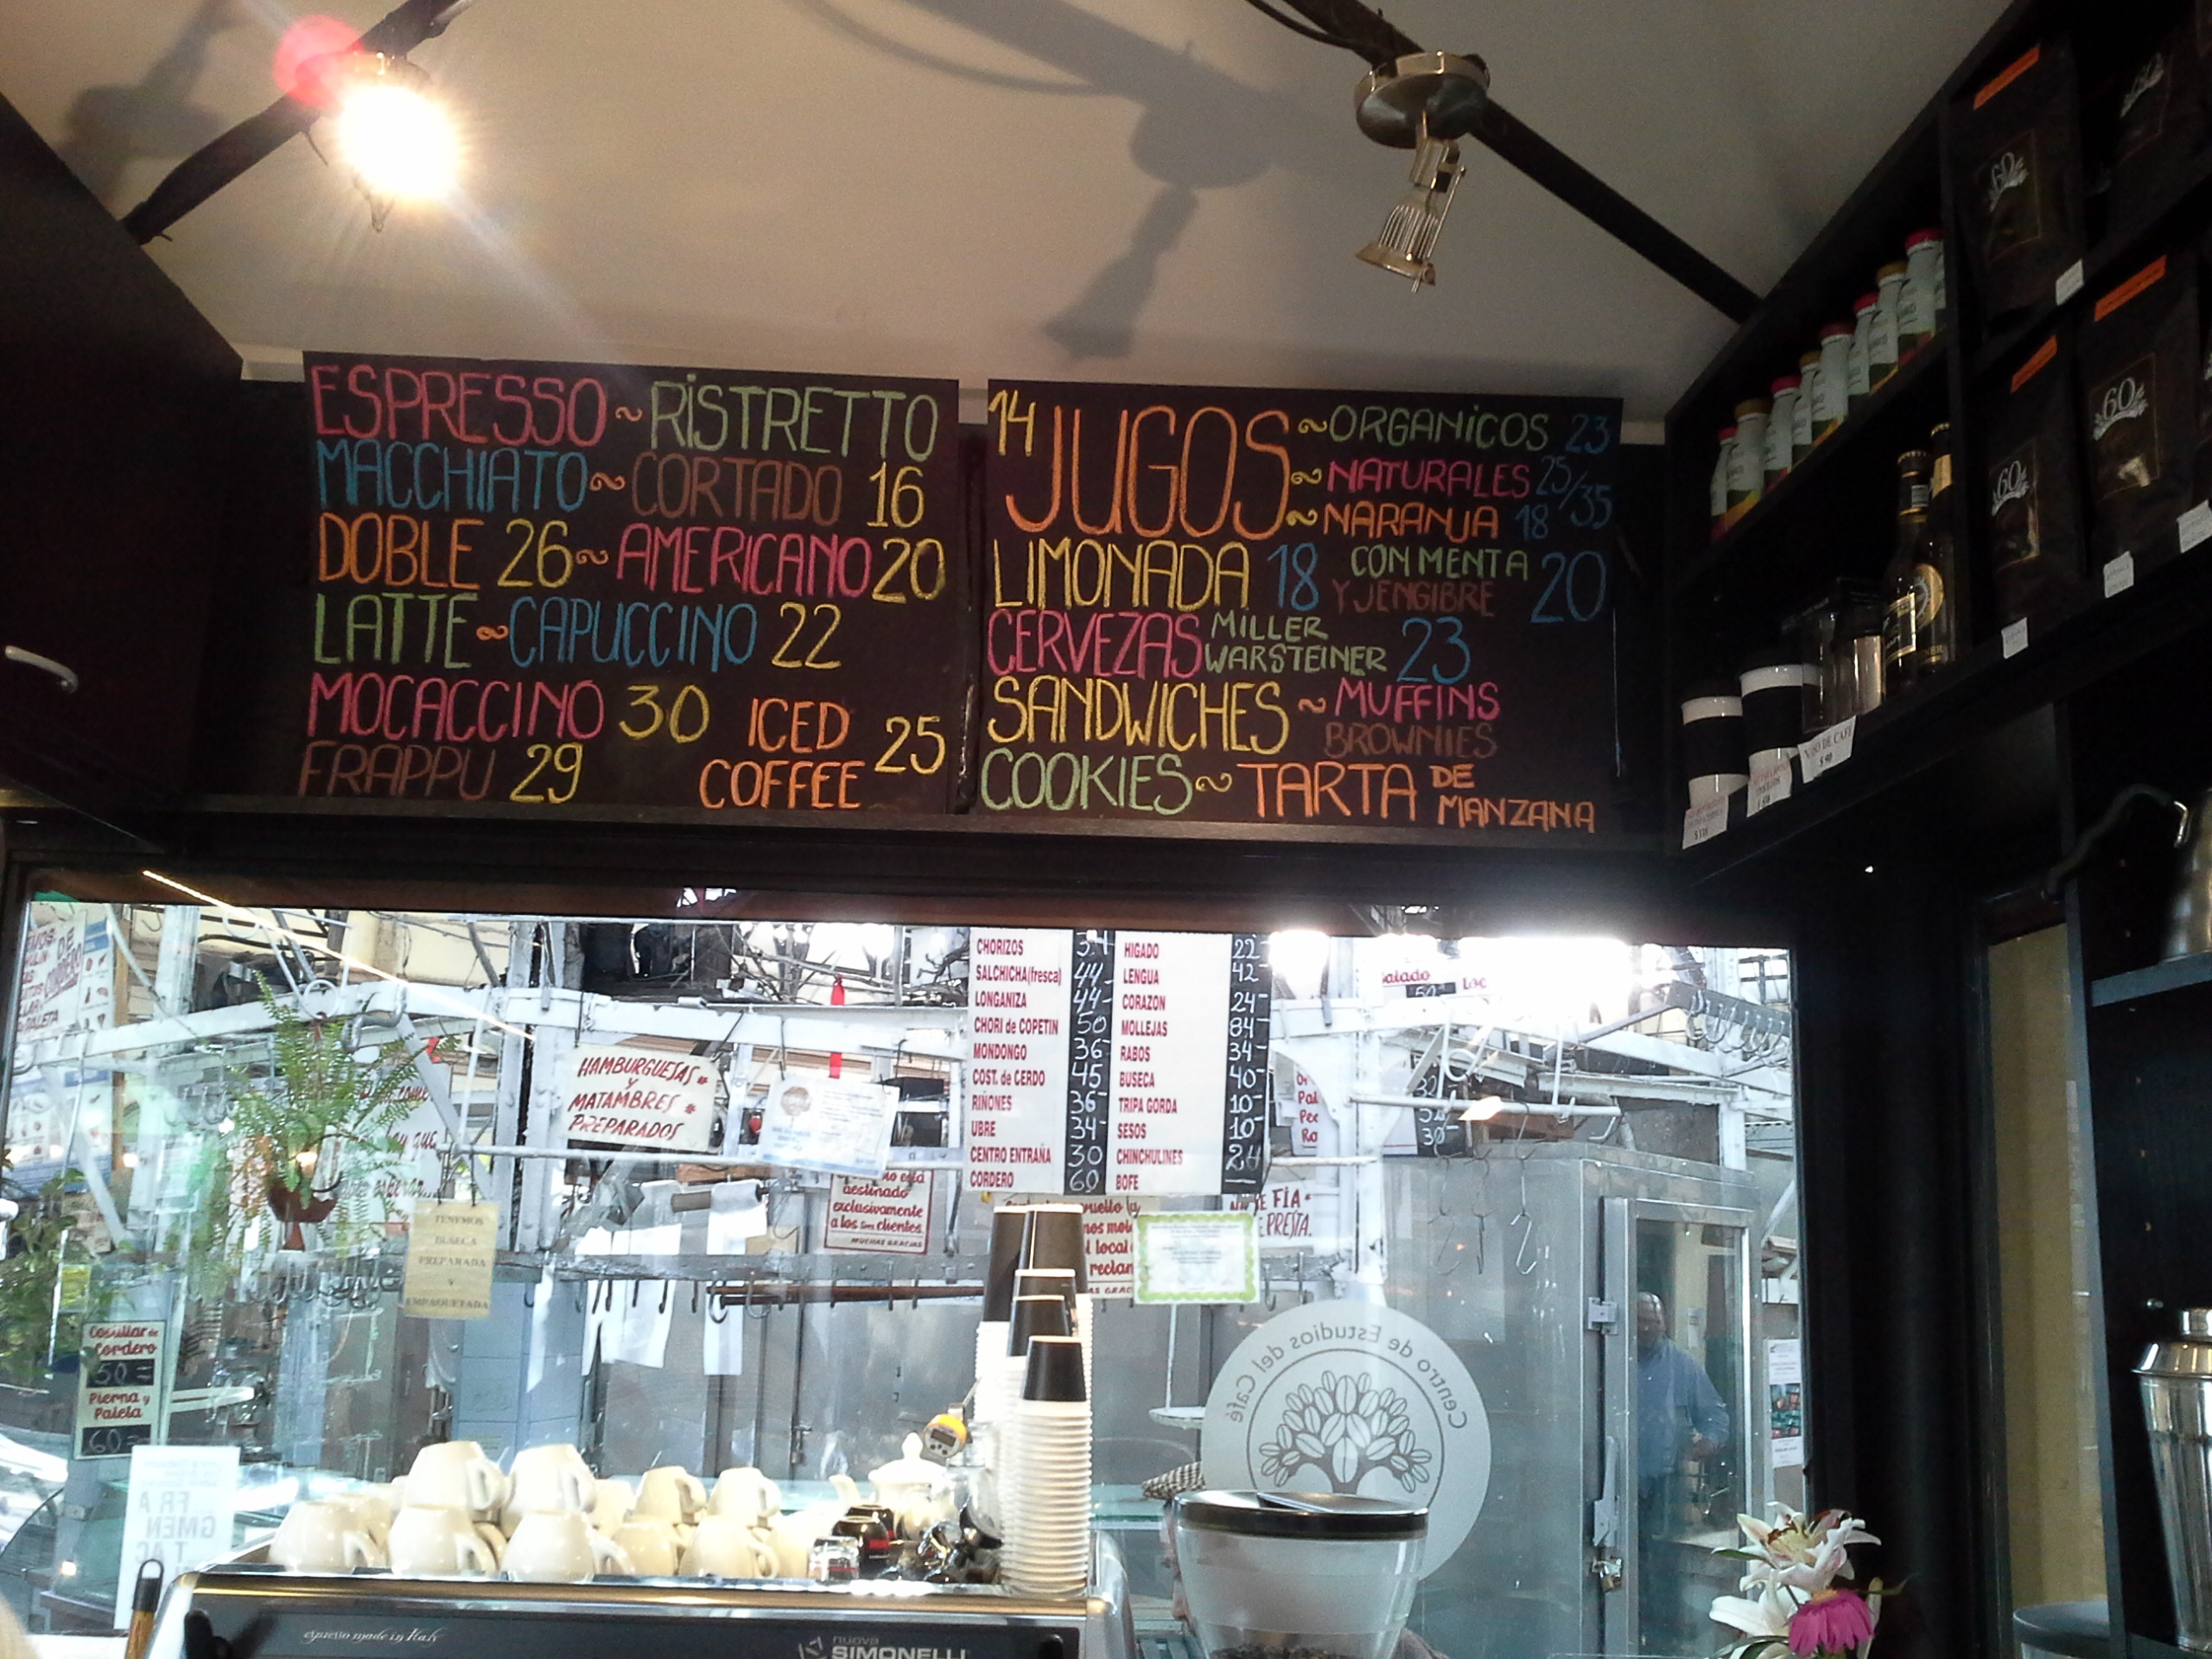 ESPRESSO ~ RISTRETTO 14
MACCHIATO ~ CORTADO 16
DOBLE 26 ~ AMERICANO 20
LATTE ~ CAPUCCINO 22
MOCACCINO 30
FRAPPU 29
ICED
COFFEE 25
JUGOS ~ ORGANICOS 23
~ NATURALES 25/35
~ NARANJA 18
LIMONADA 18 CON MENTA
Y JENGIBRE 20
CERVEZAS MILLER
WARSTEINER 23
SANDWICHES ~ MUFFINS
BROWNIES
COOKIES ~ TARTA DE
MANZANA
60
60
60
60
VASO DE CAFE
$ 90
CHORIZOS
SALCHICHA (fresca) 44-
LONGANIZA 44-
CHORI de COPETIN 50
MONDONGO 36-
COST. de CERDO 45
RIÑONES 36-
UBRE 34-
CENTRO ENTRAÑA 30
CORDERO 60
HIGADO 22-
LENGUA 42-
CORAZON 24-
MOLLEJAS 84-
RABOS 34-
BUSECA 40-
TRIPA GORDA 10-
SESOS 10-
CHINCHULINES
BOFE
HAMBURGUESAS
Y
MATAMBRES
PREPARADOS
TENEMOS
BUSECA
PREPARADA
Y
EMPAQUETADA
destinado
exclusivamente
a los Sres clientes
MUCHAS GRACIAS
FIA
PRESTA.
Costillar de
Cordero
50=
Pierna y
Paleta
60=
Centro de Estudios del Café
FRA
GMEN
TAC
espresso made in Italy
nuova
SIMONELLI